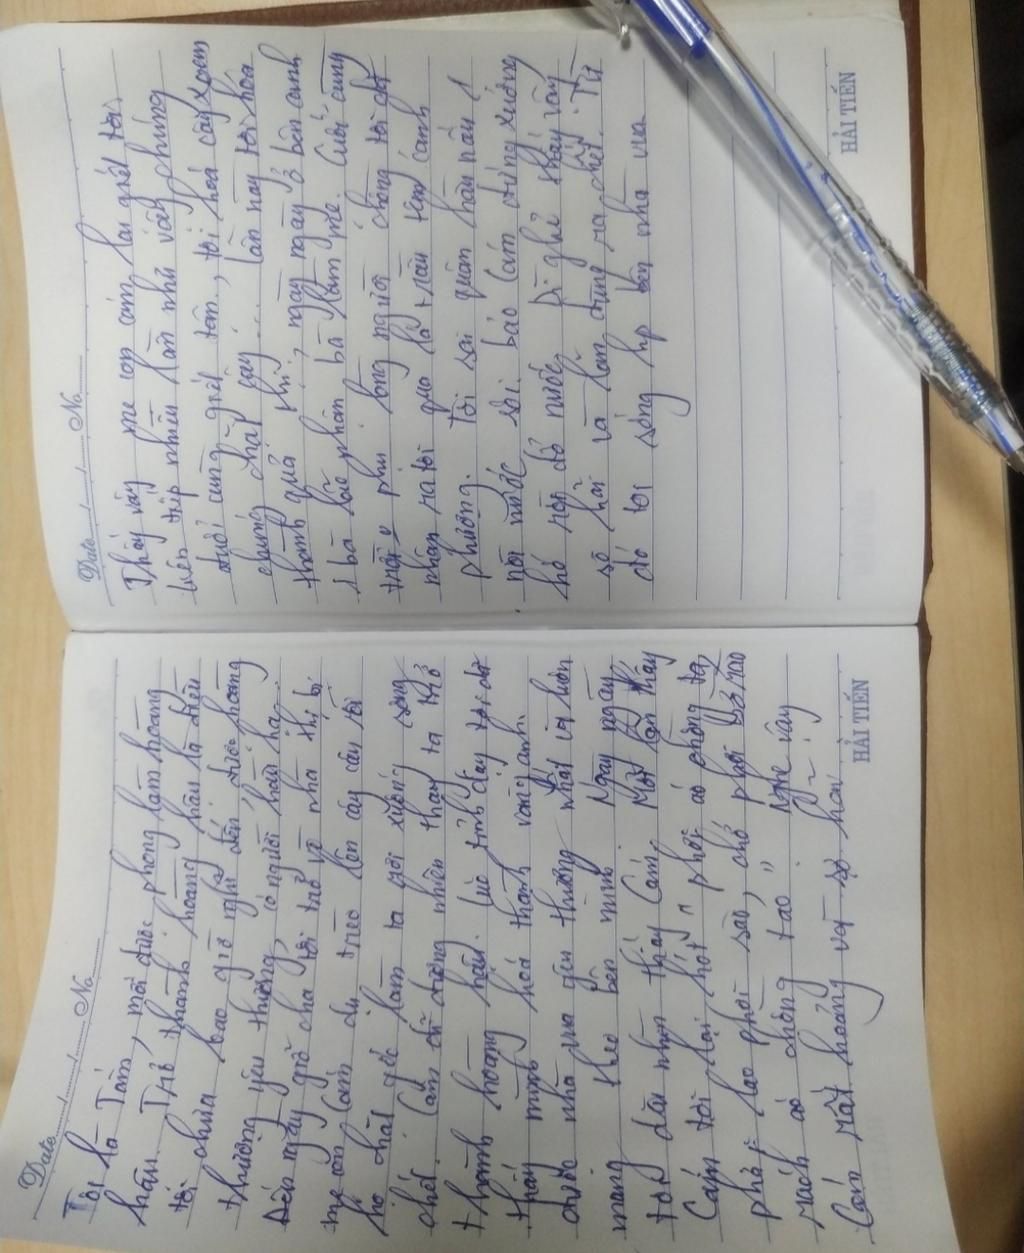 Date ....../....../...... No ......
Tôi là Tấm, mới được phong làm hoàng
hậu. Trở thành hoàng hậu là điều
tôi chưa bao giờ nghĩ đến, được hoàng
thượng yêu thương, có người hầu hạ.
Đến ngày giỗ cha, tôi trở về nhà thì bị
mẹ con Cám dụ trèo lên cây cau rồi
họ chặt gốc làm ta rơi xuống sông
chết. Cám dĩ dương nhiên thay ta trở
thành hoàng hậu. Lúc tỉnh dậy tôi đã
thấy mình hoá thành vàng anh.
được nhà vua yêu thương nhất và luôn
mang theo bên mình. Ngày ngày
tôi dần nhìn thấy Cám. Mỗi lần thấy
Cám tôi lại hót " phơi áo chồng tao
phải lao phơi sào, chớ phơi bờ rào
rách áo chồng tao " Nghe vậy
Cám mất hoảng vì sợ hãi
HẢI TIẾN
Date ....../....../...... No ......
Thấy vậy mẹ con cám lại giết tôi,
liên tiếp nhiều lần như vậy nhưng
đuổi cùng giết tận, tôi hoá cây xoan
chúng chặt cây ... lần này tôi hóa
thành quả thị, ngày ngày ở bên cạnh
1 bà lão phàm bà làm mẹ. Cuối cùng
trời phụ lòng người chồng tôi đã
nhận ra tôi qua lá trầu têm cánh
phượng. Tôi sai quân hầu nấu 1
nồi nước sôi bảo Cám đứng xuống
hố rồi dội nước. Dì ghẻ thấy vậy
sợ hãi và lăn đùng ra chết. Từ
đó tôi sống hp bên nhà vua
HẢI TIẾN